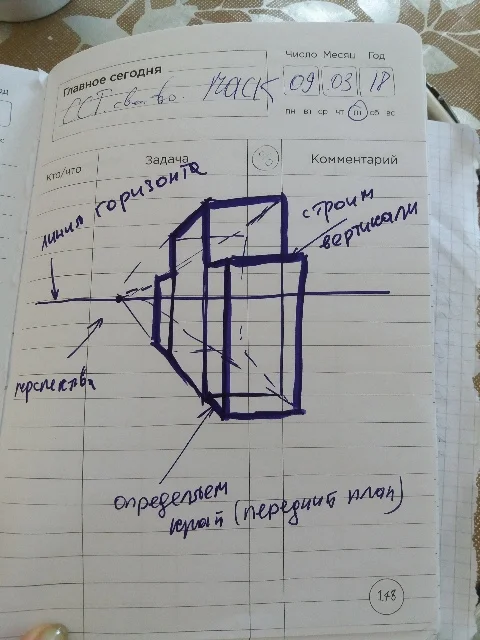 Число Месяц Год
Главное сегодня
09 03 18
пн вт ср чт пт сб вс
кто/что Задача % Комментарий
линия горизонта
строим
вертикали
перспектива
определяем
край (передний план)
148